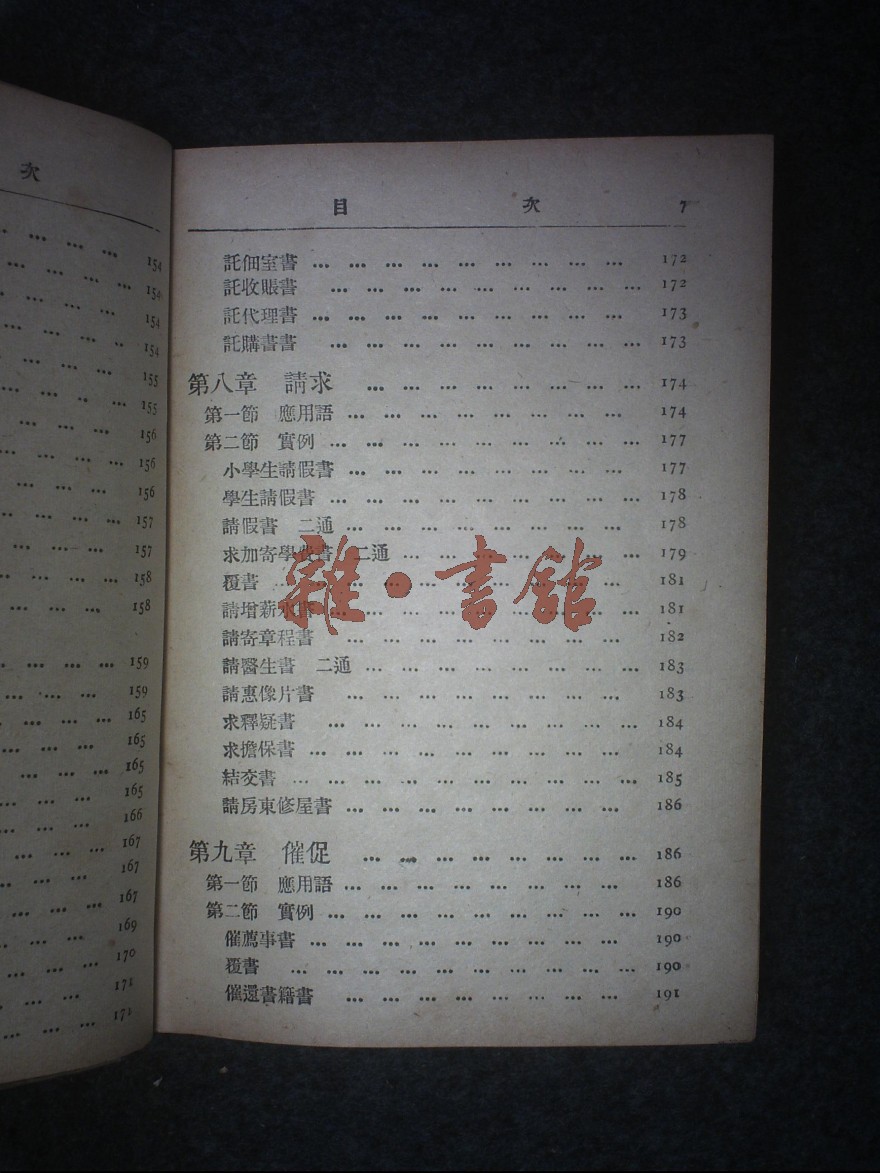 次
154
154
154
154
155
155
156
156
156
157
157
158
158
159
159
165
165
165
165
166
167
167
167
169
170
171
171
目 次 7
託佃室書 … … … … … … … … … 172
託收賬書 … … … … … … … … … 172
託代理書 … … … … … … … … … 173
託購書書 … … … … … … … … … 173
第八章 請求 … … … … … … … … 174
第一節 應用語 … … … … … … … … 174
第二節 實例 … … … … … … … … … 177
小學生請假書 … … … … … … … … 177
學生請假書 … … … … … … … … … 178
請假書 二通 … … … … … … … … 178
求加寄學費書 二通 … … … … … … … 179
覆書 … … … … … … … … … … 181
請增薪水書 … … … … … … … … … 181
請寄章程書 … … … … … … … … 182
請醫生書 二通 … … … … … … … … 183
請惠像片書 … … … … … … … … 183
求釋疑書 … … … … … … … … … 184
求擔保書 … … … … … … … … … 184
結交書 … … … … … … … … … … 185
請房東修屋書 … … … … … … … … … 186
第九章 催促 … … … … … … … … 186
第一節 應用語 … … … … … … … … 186
第二節 實例 … … … … … … … … … 190
催薦事書 … … … … … … … … … 190
覆書 … … … … … … … … … … 190
催還書籍書 … … … … … … … … 191
雜·書館